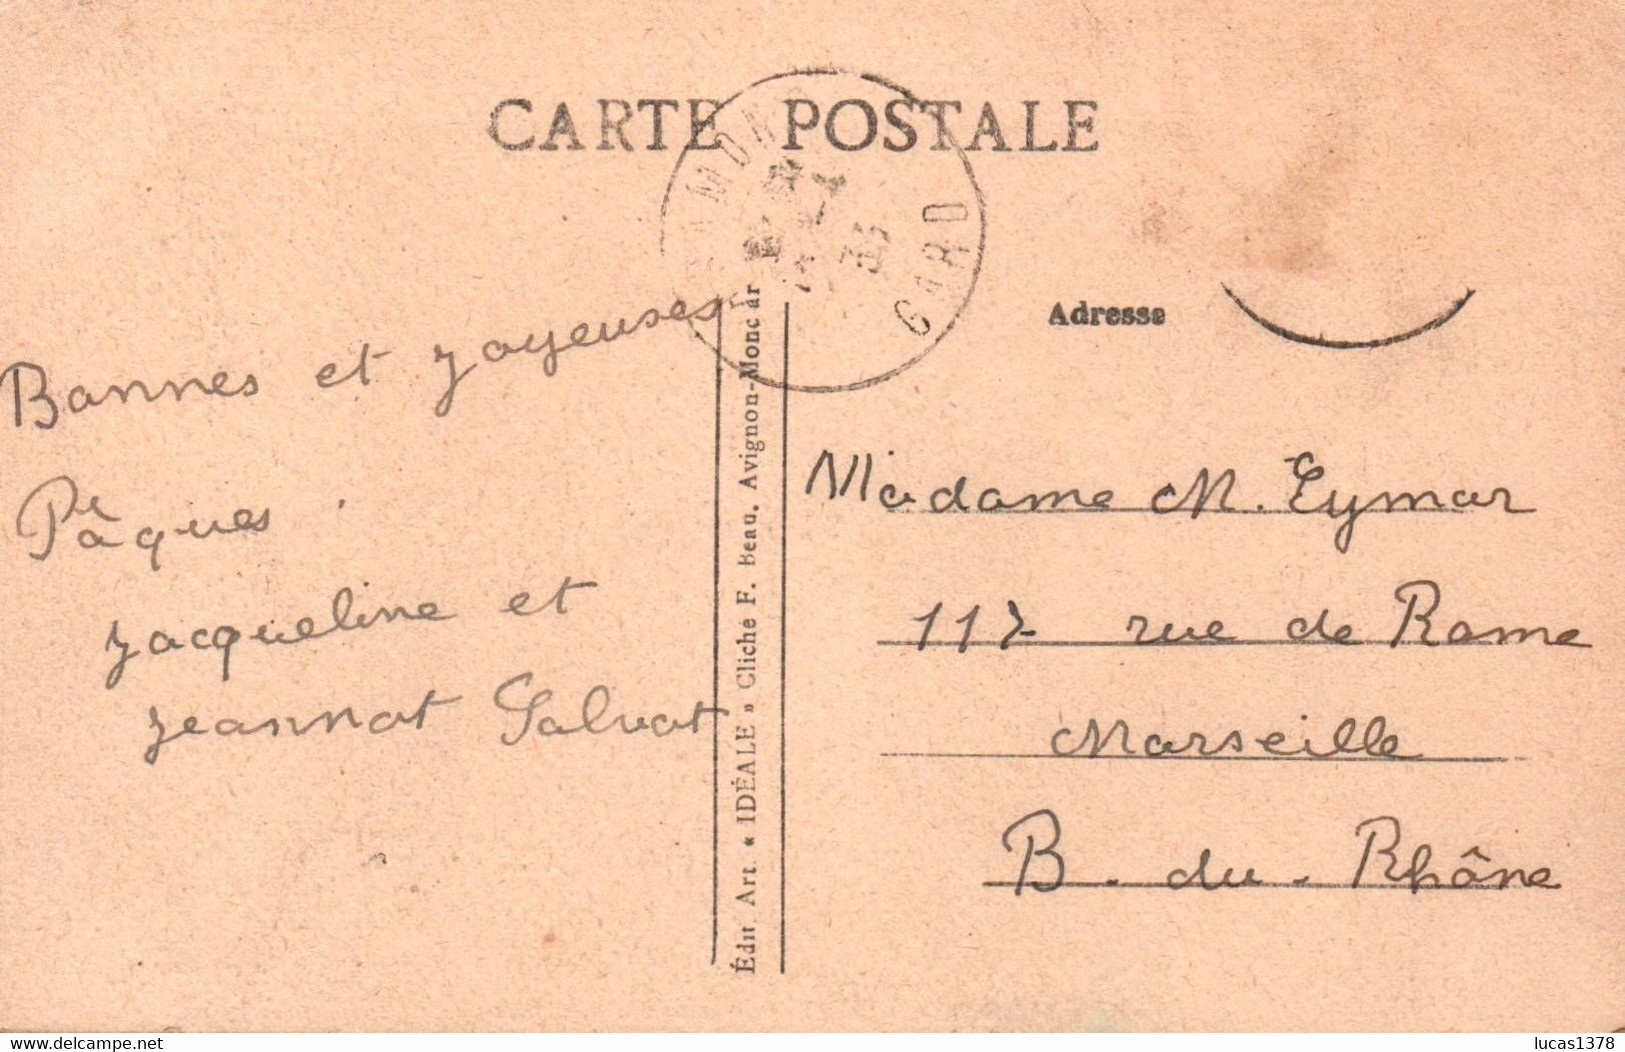 CARTE POSTALE
GARD
Adresse
Bonnes et Joyeuses
Pâques.
Jacqueline et
Jeannot Salvat
Édit. Art. « IDÉALE » Cliche F. Beau. Avignon-Monc ar
Madame M. Eymar
117 rue de Rome
Marseille
B. du. Rhône
www.delcampe.net
lucas1378